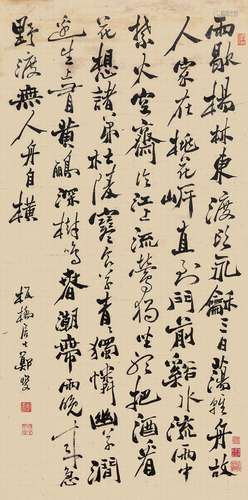 雨歇楊林東渡頭永龢三日蕩輕舟故
人家在桃花岸直到門前谿水流雨中
禁火空齋冷江上流鶯獨坐聽把酒看
花想諸弟杜陵寒食草青青獨憐幽草澗
邊生上有黃鸝深樹鳴春潮帶雨晚來急
野渡無人舟自橫
板橋居士鄭燮